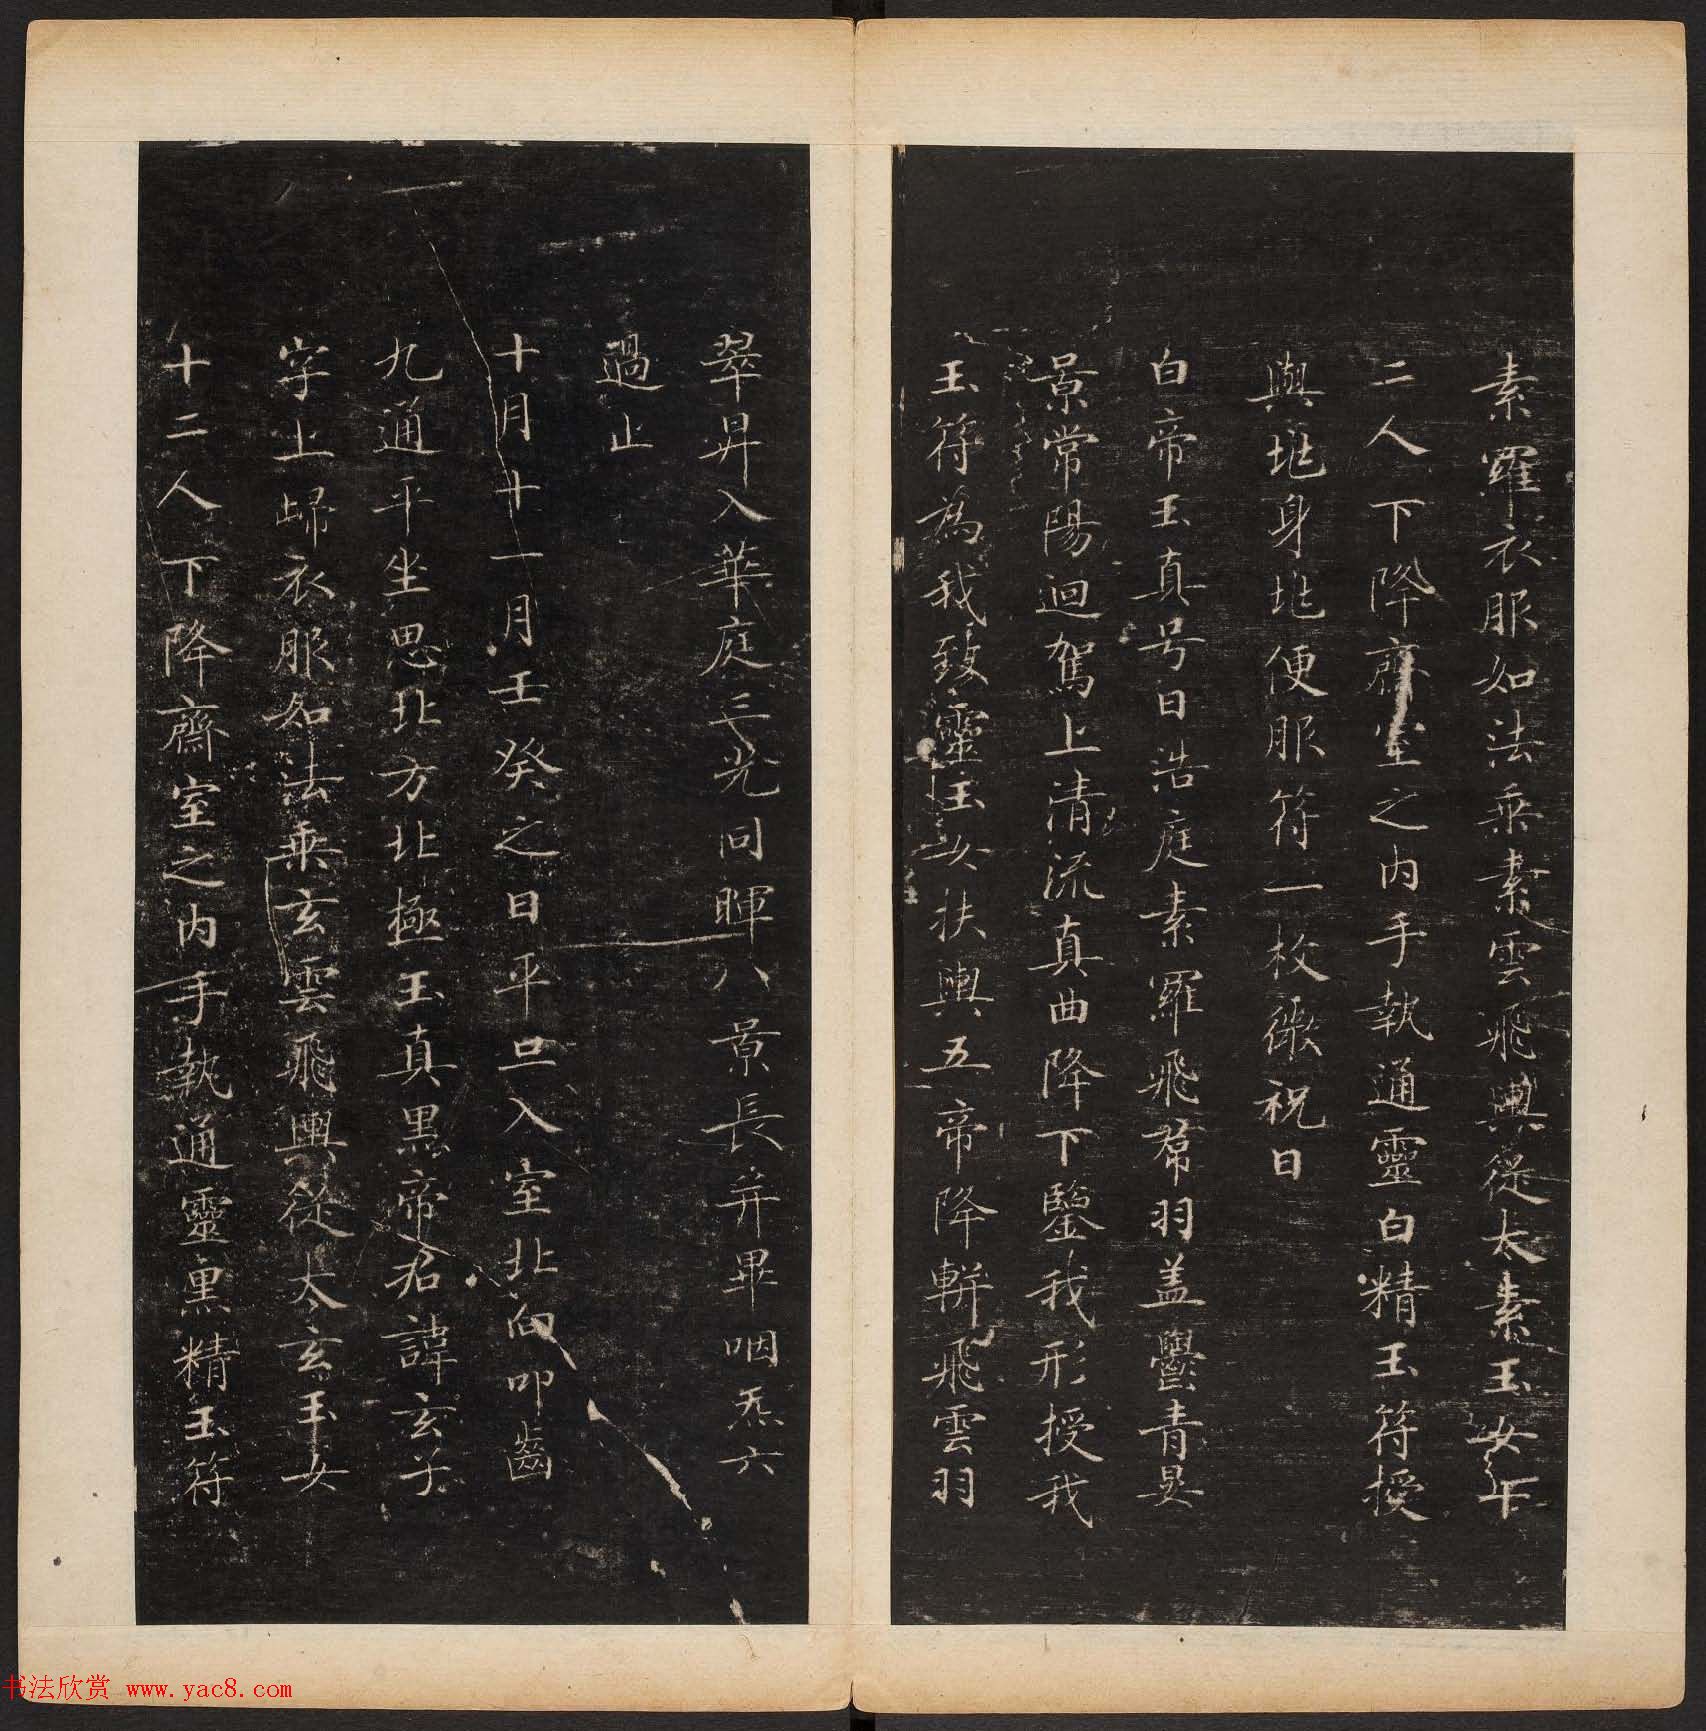 素羅衣服如法乘素雲飛輿從太素玉女十
二人下降齋室之内手執通靈白精玉符授
與地身地便服符一枚微祝曰
白帝玉真号曰浩庭素羅飛帬羽盖欝青晃
景常陽迴駕上清流真曲降下鑒我形授我
玉符為我致靈玉女扶輿五帝降軿飛雲羽
翠昇入華庭三光同暉八景長并畢咽炁六
過止
十月十一月壬癸之日平旦入室北向叩齒
九通平坐思北方北極玉真黑帝君諱玄子
字上歸衣服如法乘玄雲飛輿從太玄玉女
十二人下降齋室之内手執通靈黑精玉符
书法欣赏 www.yac8.com